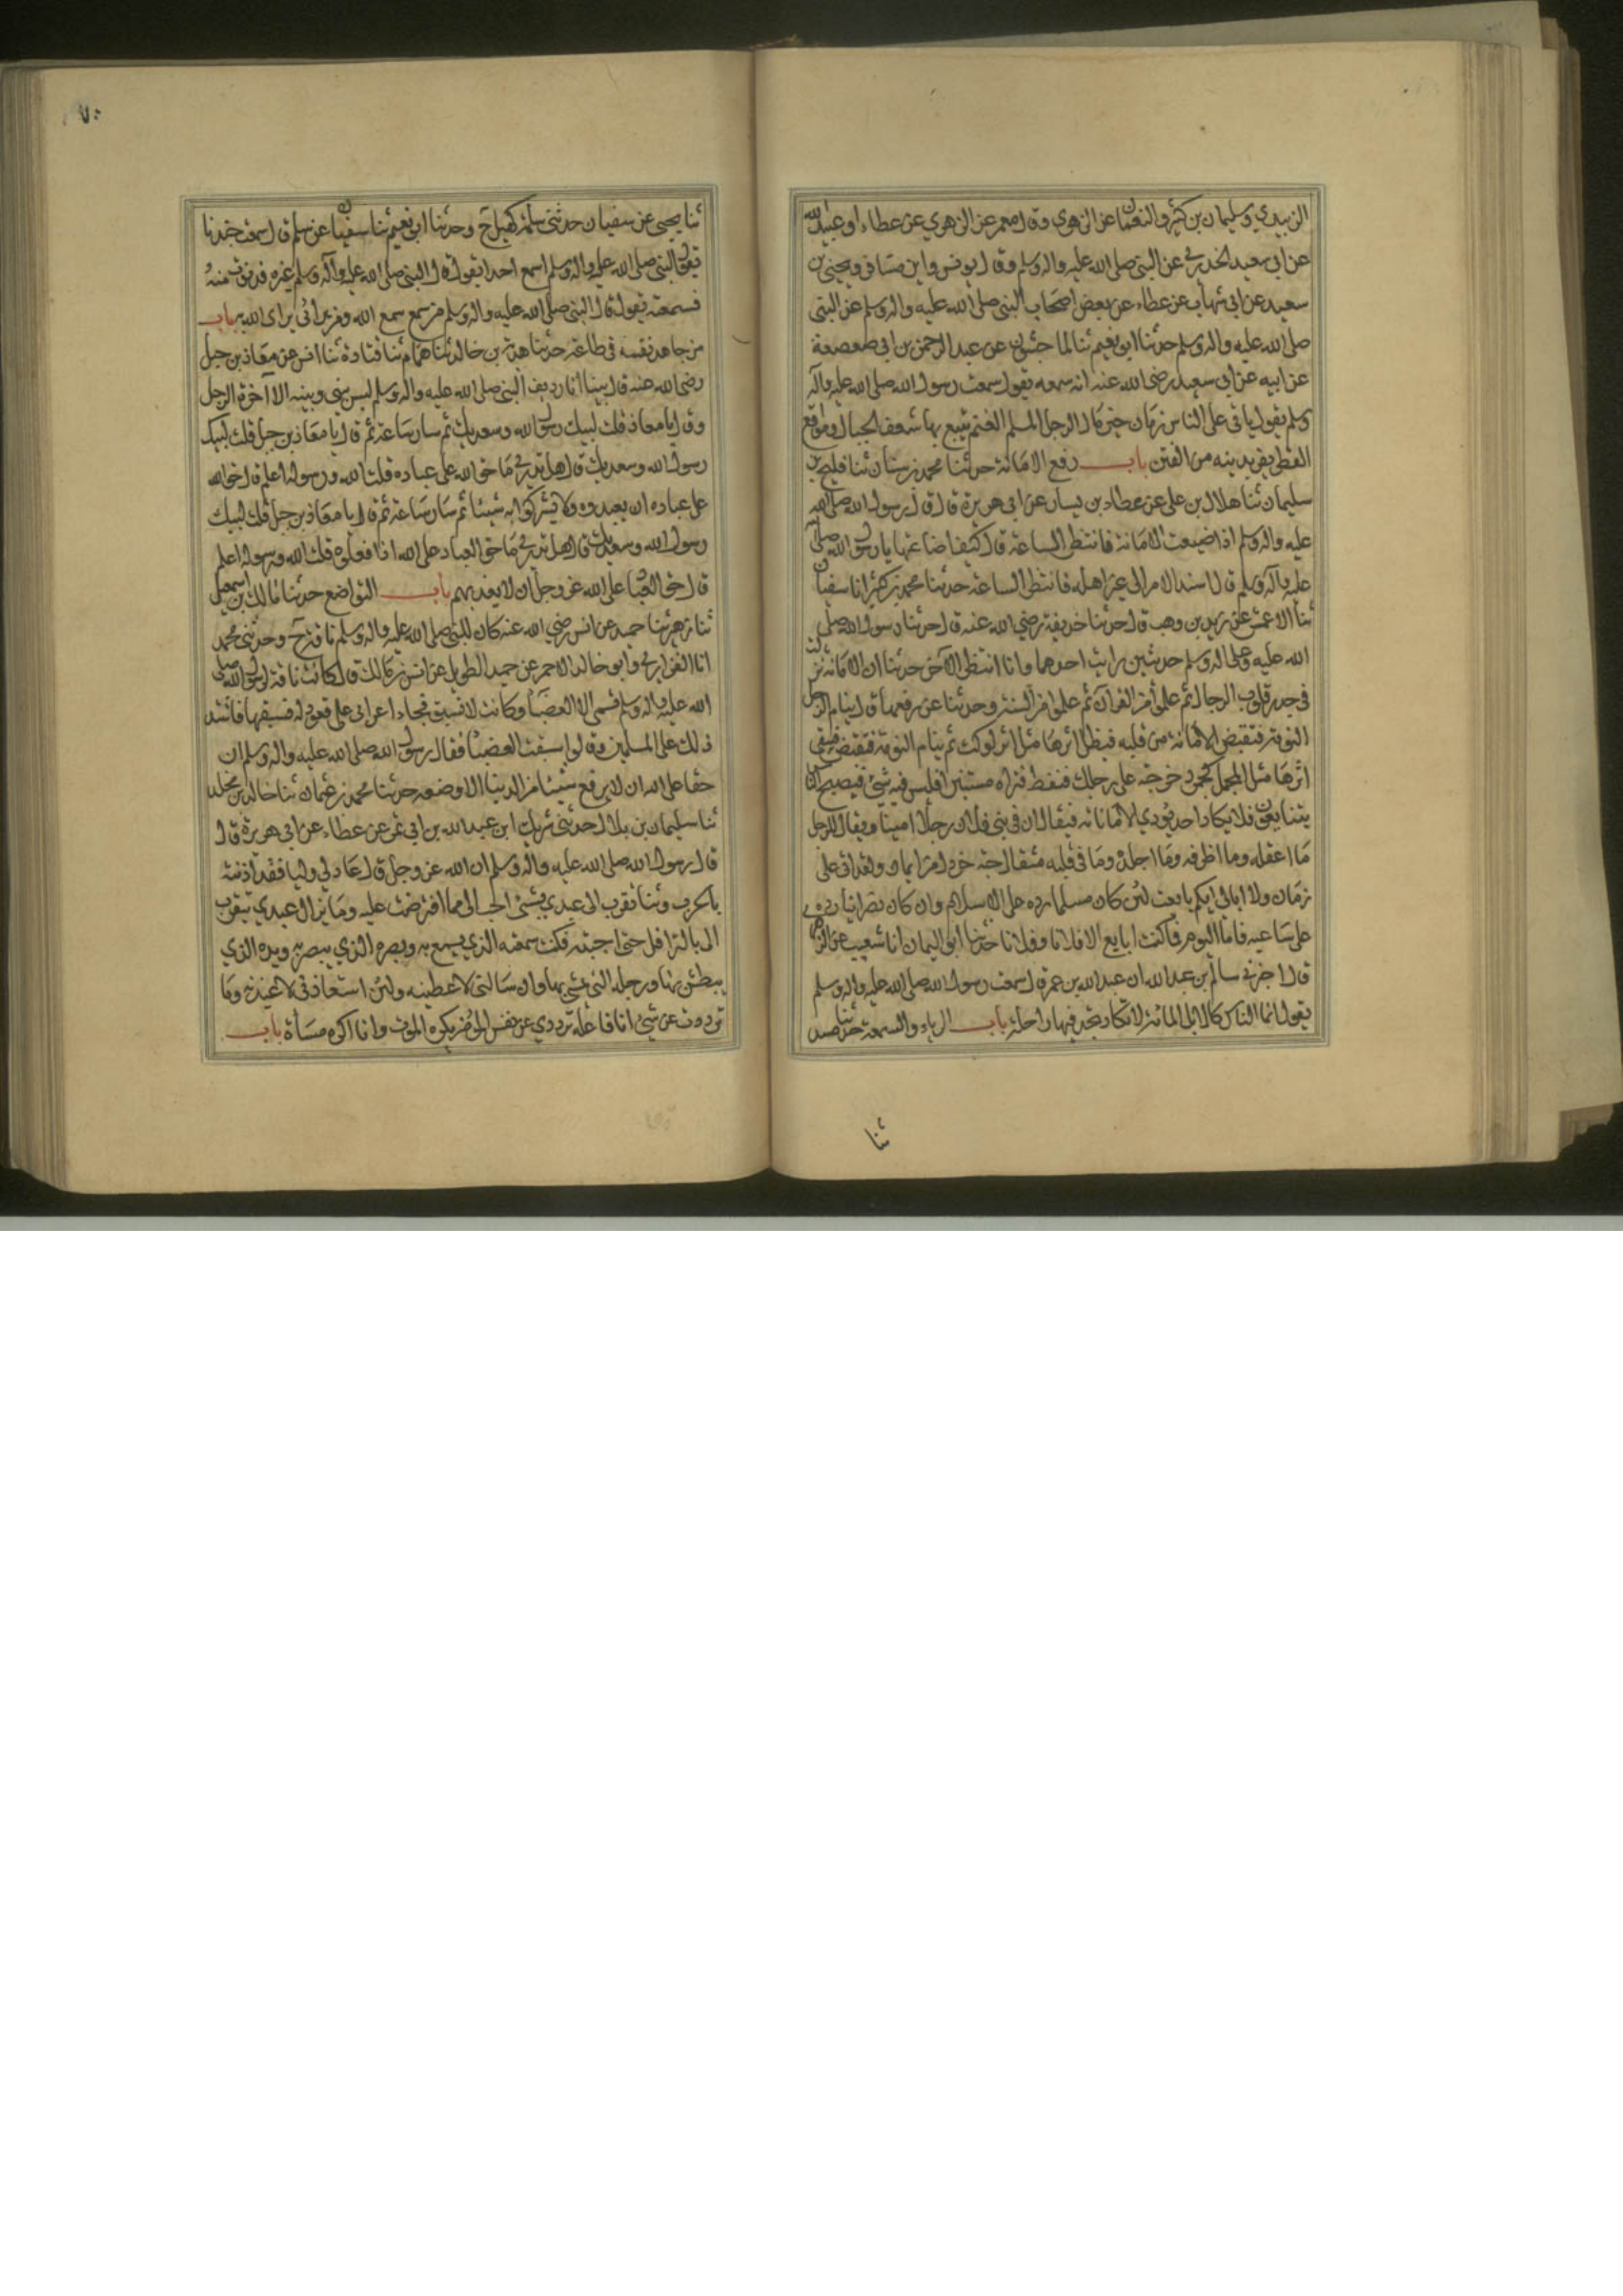 الزبيدي وسليمان بن كثير والنعمان عن الزهري وقال معمر عن الزهري عن عطاء او عبيد الله
عن ابي سعيد الخدري عن النبي صلى الله عليه واله وسلم وقال يونس وابن مسافر ويحيى بن
سعيد عن ابن شهاب عن عطاء عن بعض اصحاب النبي صلى الله عليه واله وسلم عن النبي
صلى الله عليه واله وسلم حدثنا ابو نعيم ثنا الماجشون عن عبد الرحمن بن ابي صعصعة
عن ابيه عن ابي سعيد رضي الله عنه انه سمعه يقول سمعت رسول الله صلى الله عليه وآله
وسلم يقول ياتي على الناس زمان خير مال الرجل المسلم الغنم يتبع بها شعف الجبال ومواقع
القطر يفر بدينه من الفتن باب رفع الامانة حدثنا محمد بن سنان ثنا فليح بن
سليمان ثنا هلال بن علي عن عطاء بن يسار عن ابي هريرة قال قال رسول الله صلى الله
عليه واله وسلم اذا ضيعت الامانة فانتظر الساعة قال كيف اضاعتها يا رسول الله صلى الله
عليه وآله وسلم قال اذا اسند الامر الى غير اهله فانتظر الساعة حدثنا محمد بن كثير انا سفيان
ثنا الاعمش عن زيد بن وهب قال حدثنا حذيفة رضي الله عنه قال حدثنا رسول الله صلى
الله عليه وعلى اله وسلم حديثين رايت احدهما وانا انتظر الآخر حدثنا ان الامانة نزلت
في جدر قلوب الرجال ثم علموا من القرآن ثم علموا من السنة وحدثنا عن رفعها قال ينام الرجل
النومة فتقبض الامانة من قلبه فيظل اثرها مثل اثر الوكت ثم ينام النومة فتقبض فيبقى
اثرها مثل المجل كجمر دحرجته على رجلك فنفط فتراه منتبرا فليس فيه شيء فيصبح الناس
يتبايعون فلا يكاد احد يؤدي الامانة فيقال ان في بني فلان رجلا امينا ويقال للرجل
ما اعقله وما اظرفه وما اجلده وما في قلبه مثقال حبة خردل من ايمان ولقد اتى علي
زمان ولا ابالي ايكم بايعت لئن كان مسلما رده علي الاسلام وان كان نصرانيا رده
علي ساعيه فاما اليوم فما كنت ابايع الا فلانا وفلانا حدثنا ابو اليمان انا شعيب عن الزهري
قال اخبرني سالم بن عبد الله ان عبد الله بن عمر قال سمعت رسول الله صلى الله عليه واله وسلم
يقول انما الناس كالابل المائة لا تكاد تجد فيها راحلة باب الرياء والسمعة حدثنا مسدد
ثنا
ثنا يحيى عن سفيان حدثني سلمة بن كهيل ح وحدثنا ابو نعيم ثنا سفيان عن سلمة قال سمعت جندبا
يقول قال النبي صلى الله عليه واله وسلم ولم اسمع احدا يقول قال النبي صلى الله عليه وآله وسلم غيره فدنوت منه
فسمعته يقول قال النبي صلى الله عليه واله وسلم من سمع سمع الله ومن يرائي يرائي الله به باب
من جاهد نفسه في طاعة حدثنا هدبة بن خالد ثنا همام ثنا قتادة ثنا انس عن معاذ بن جبل
رضي الله عنه قال بينا انا رديف النبي صلى الله عليه واله وسلم ليس بيني وبينه الا آخرة الرحل
وقال يا معاذ قلت لبيك رسول الله وسعديك ثم سار ساعة ثم قال يا معاذ بن جبل قلت لبيك
رسول الله وسعديك قال هل تدري ما حق الله على عباده قلت الله ورسوله اعلم قال حق الله
على عباده ان يعبدوه ولا يشركوا به شيئا ثم سار ساعة ثم قال يا معاذ بن جبل قلت لبيك
رسول الله وسعديك قال هل تدري ما حق العباد على الله اذا فعلوه قلت الله ورسوله اعلم
قال حق العباد على الله عز وجل ان لا يعذبهم باب التواضع حدثنا مالك بن اسمعيل
ثنا زهير ثنا حميد عن انس رضي الله عنه كان للنبي صلى الله عليه واله وسلم ناقة ح وحدثني محمد
انا الفزاري وابو خالد الاحمر عن حميد الطويل عن انس بن مالك قال كانت ناقة لرسول الله صلى
الله عليه واله وسلم تسمى العضباء وكانت لا تسبق فجاء اعرابي على قعود له فسبقها فاشتد
ذلك على المسلمين وقالوا سبقت العضباء فقال رسول الله صلى الله عليه واله وسلم ان
حقا على الله ان لا يرفع شيئا من الدنيا الا وضعه حدثنا محمد بن عثمان ثنا خالد بن مخلد
ثنا سليمان بن بلال حدثني شريك ابن عبد الله بن ابي نمر عن عطاء عن ابي هريرة قال
قال رسول الله صلى الله عليه واله وسلم ان الله عز وجل قال من عاد لي وليا فقد آذنته
بالحرب وما تقرب الى عبدي بشيء احب الي مما افترضت عليه وما يزال عبدي يتقرب
الي بالنوافل حتى احببته فكنت سمعه الذي يسمع به وبصره الذي يبصر به ويده الذي
يبطش بها ورجله التي يمشي بها وان سالني لاعطينه ولئن استعاذني لاعيذنه وما
ترددت عن شيء انا فاعله ترددي عن نفس المؤمن يكره الموت وانا اكره مساءة باب